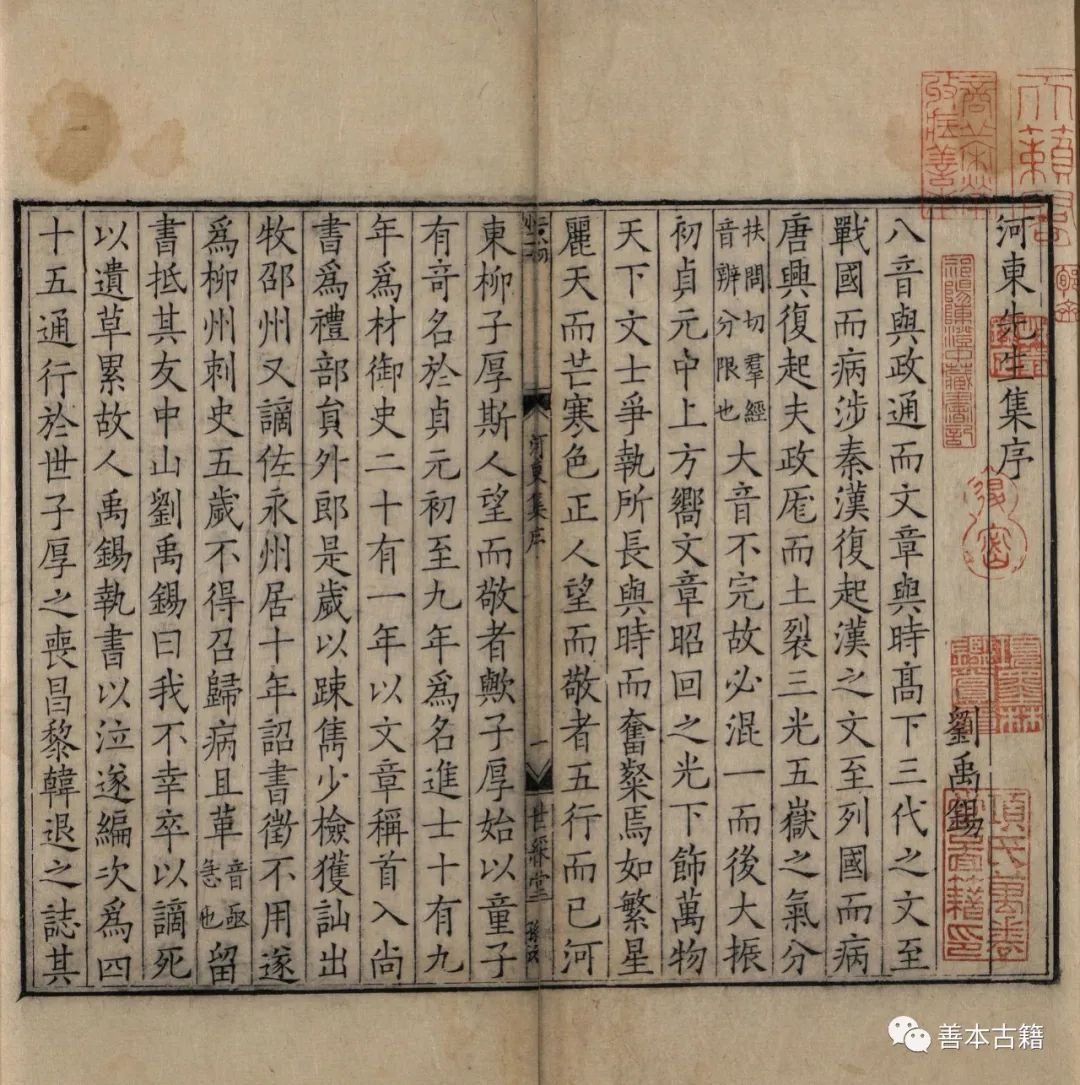 河東先生集序
劉禹錫
八音與政通而文章與時髙下三代之文至
戰國而病涉秦漢復起漢之文至列國而病
唐興復起夫政厖而土裂三光五嶽之氣分
扶問切羣經
音辨分限也
大音不完故必混一而後大振
初貞元中上方嚮文章昭回之光下飾萬物
天下文士爭執所長與時而奮粲焉如繁星
麗天而芒寒色正人望而敬者五行而已河
河東集序
一
世綵堂
東柳子厚斯人望而敬者歟子厚始以童子
有竒名於貞元初至九年爲名進士十有九
年爲材御史二十有一年以文章稱首入尚
書爲禮部貟外郎是歲以踈雋少檢獲訕出
牧邵州又謫佐永州居十年詔書徵不用遂
爲柳州刺史五歲不得召歸病且革
音亟
急也
留
書抵其友中山劉禹錫曰我不幸卒以謫死
以遺草累故人禹錫執書以泣遂編次爲四
十五通行於世子厚之喪昌黎韓退之誌其
項氏萬卷
善本古籍